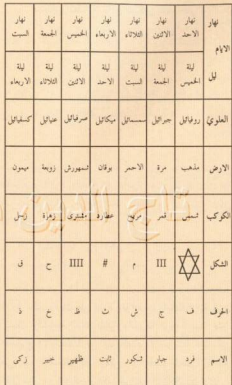 نهار الايام نهار الاحد نهار الاثنين نهار الثلاثاء نهار الاربعاء نهار الخميس نهار الجمعة نهار السبت
ليل ليلة الخميس ليلة الجمعة ليلة السبت ليلة الاحد ليلة الاثنين ليلة الثلاثاء ليلة الاربعاء
العلوي روفيائيل جبرائيل سمسمائيل ميكائيل صرفيائيل عنيائيل كسفيائيل
الارض مذهب مرة الاحمر برقان شمهورش زوبعة ميمون
الكوكب شمس قمر مريخ عطارد مشترى زهرة زحل
الشكل III م # IIII ح ق
الحرف ف ج ش ث ظ خ ذ
الاسم فرد جبار شكور ثابت ظهير خبير زكى
تاج الدين